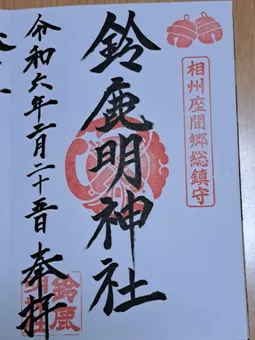 相州座間郷総鎮守
鈴鹿明神社
奉拝
令和六年二月二十五日
鈴鹿明神社